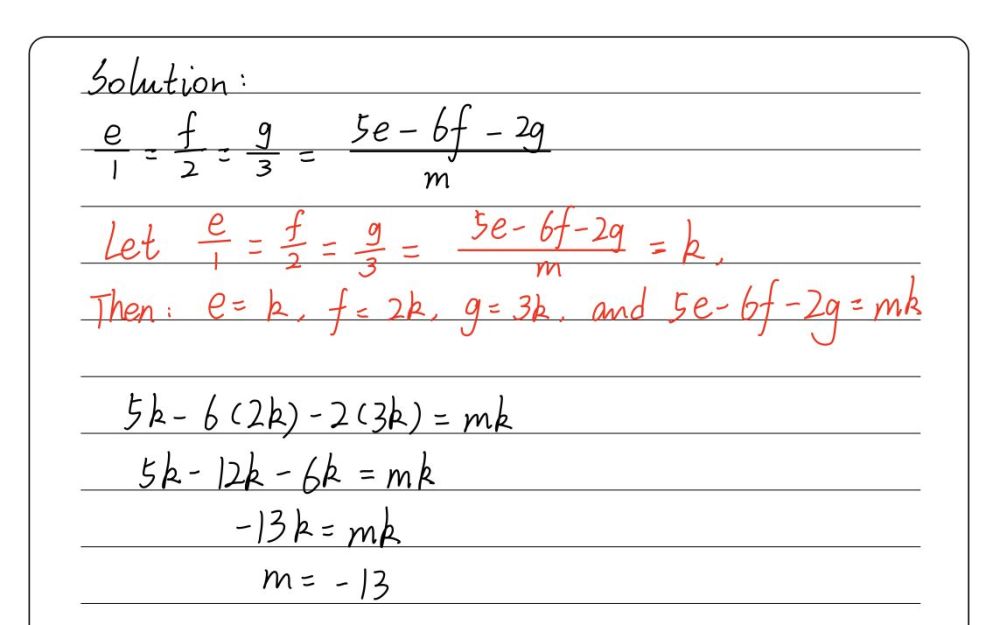 Solution:
e/1 = f/2 = g/3 = (5e - 6f - 2g)/m
Let e/1 = f/2 = g/3 = (5e - 6f - 2g)/m = k,
Then: e = k, f = 2k, g = 3k, and 5e - 6f - 2g = mk
5k - 6(2k) - 2(3k) = mk
5k - 12k - 6k = mk
-13k = mk
m = -13